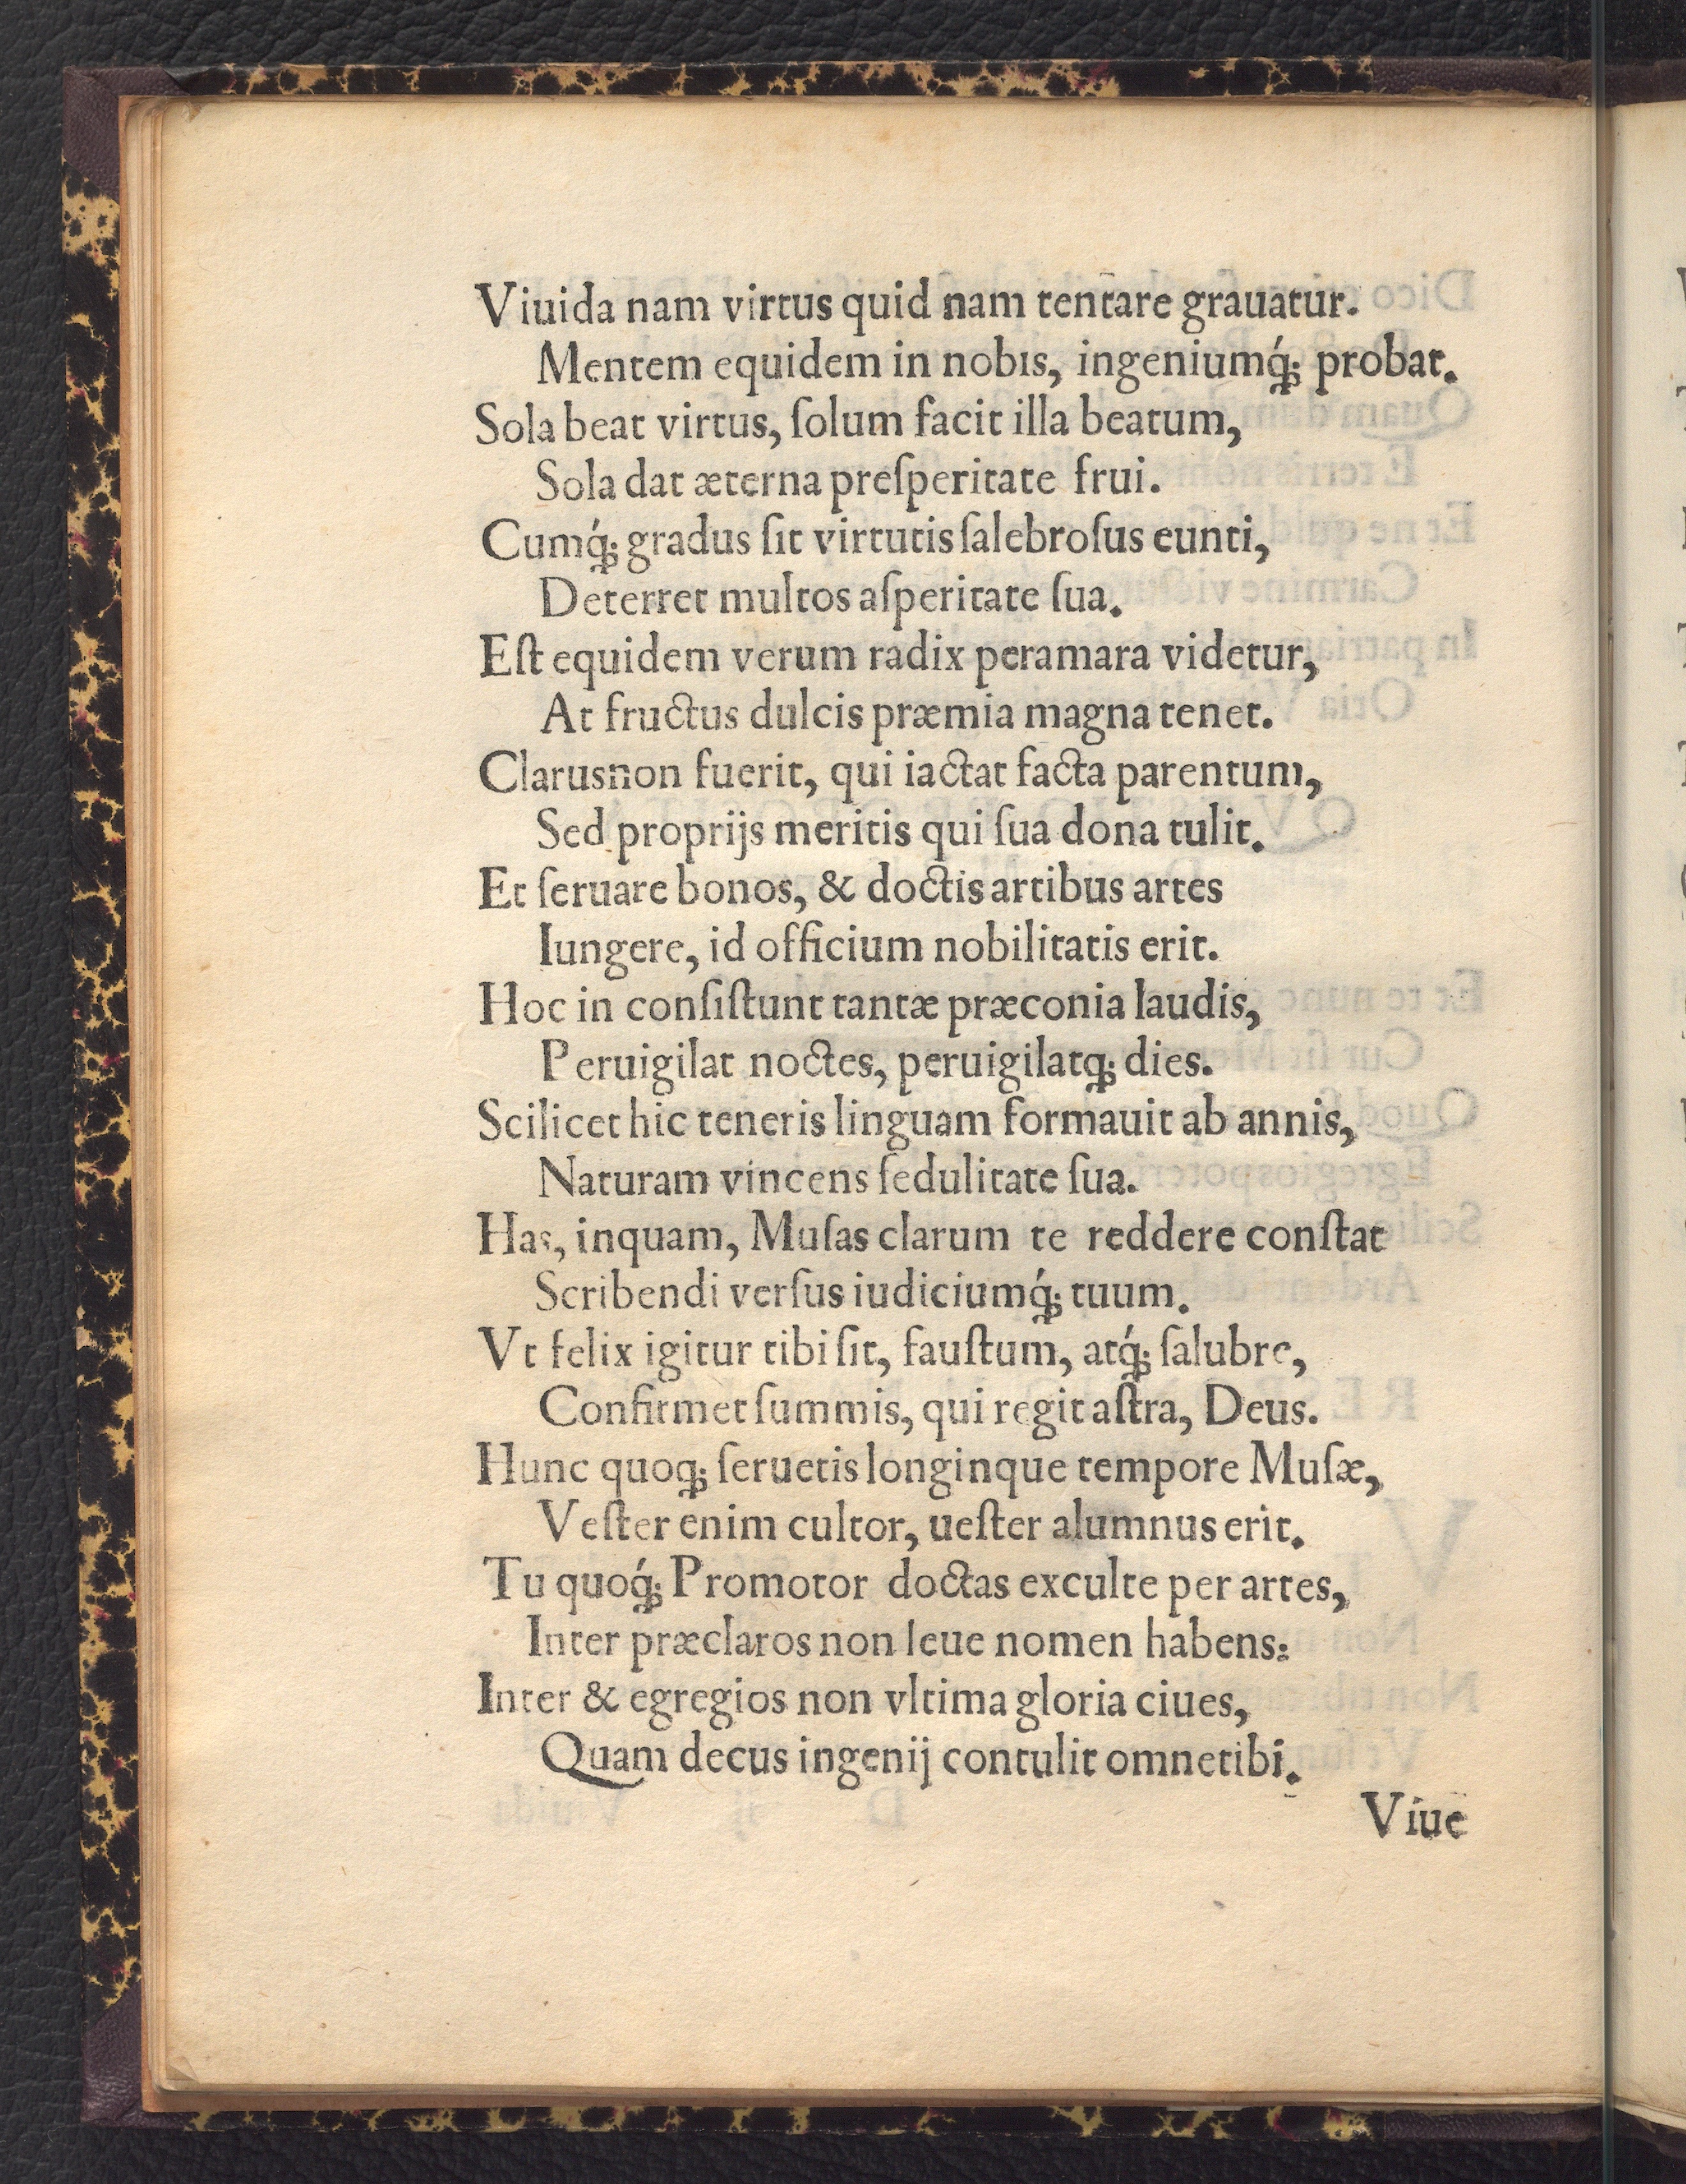 Viuida nam virtus quid nam tentare grauatur.
Mentem equidem in nobis, ingeniumq́; probat.
Sola beat virtus, ſolum facit illa beatum,
Sola dat æterna preſperitate frui.
Cumq́; gradus ſit virtutis ſalebroſus eunti,
Deterret multos aſperitate ſua.
Eſt equidem verum radix peramara videtur,
At fructus dulcis præmia magna tenet.
Clarusnon fuerit, qui iactat facta parentum,
Sed proprijs meritis qui ſua dona tulit.
Et ſeruare bonos, & doctis artibus artes
Iungere, id officium nobilitatis erit.
Hoc in conſiſtunt tantæ præconia laudis,
Peruigilat noctes, peruigilatq; dies.
Scilicet hic teneris linguam formauit ab annis,
Naturam vincens ſedulitate ſua.
Has, inquam, Muſas clarum te reddere conſtat
Scribendi verſus iudiciumq́; tuum.
Vt felix igitur tibi ſit, fauſtum, atq́; ſalubre,
Confirmet ſummis, qui regit aſtra, Deus.
Hunc quoq; ſeruetis longinque tempore Muſæ,
Veſter enim cultor, ueſter alumnus erit.
Tu quoq́; Promotor doctas exculte per artes,
Inter præclaros non leue nomen habens:
Inter & egregios non vltima gloria ciues,
Quam decus ingenij contulit omnetibi.
Viue